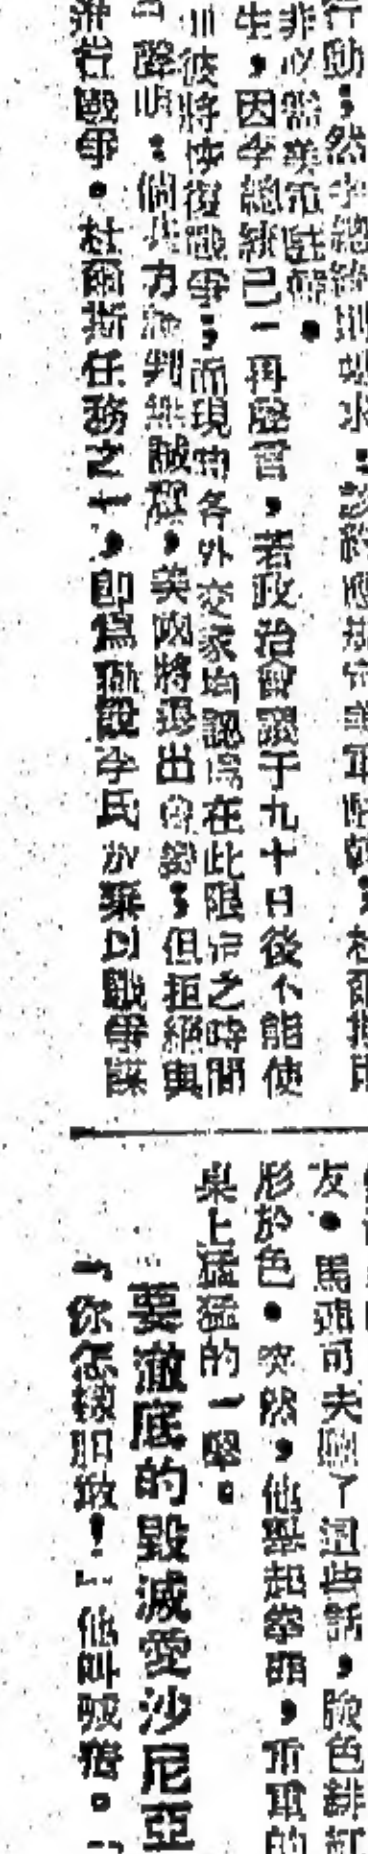 行動；然李總統則要求：該約應規定美軍駐韓，杜爾斯則
非必需美軍駐韓。
生，因李總統已一再聲言，若政治會議于九十日後不能使
彼將恢復戰爭；而現時各外交家均認為在此限定之時間
聲明：倘共方談判無誠意，美國將退出會議；但拒絕與
戰爭。杜爾斯任務之一，即為勸說李氏放棄以戰爭謀
友。馬亞可夫聽了這些話，臉色緋紅
形於色。突然，他舉起拳頭，重重的
桌上猛猛的一擊。
要澈底的毀滅愛沙尼亞
「你怎樣胆敢！」他叫喊着。「